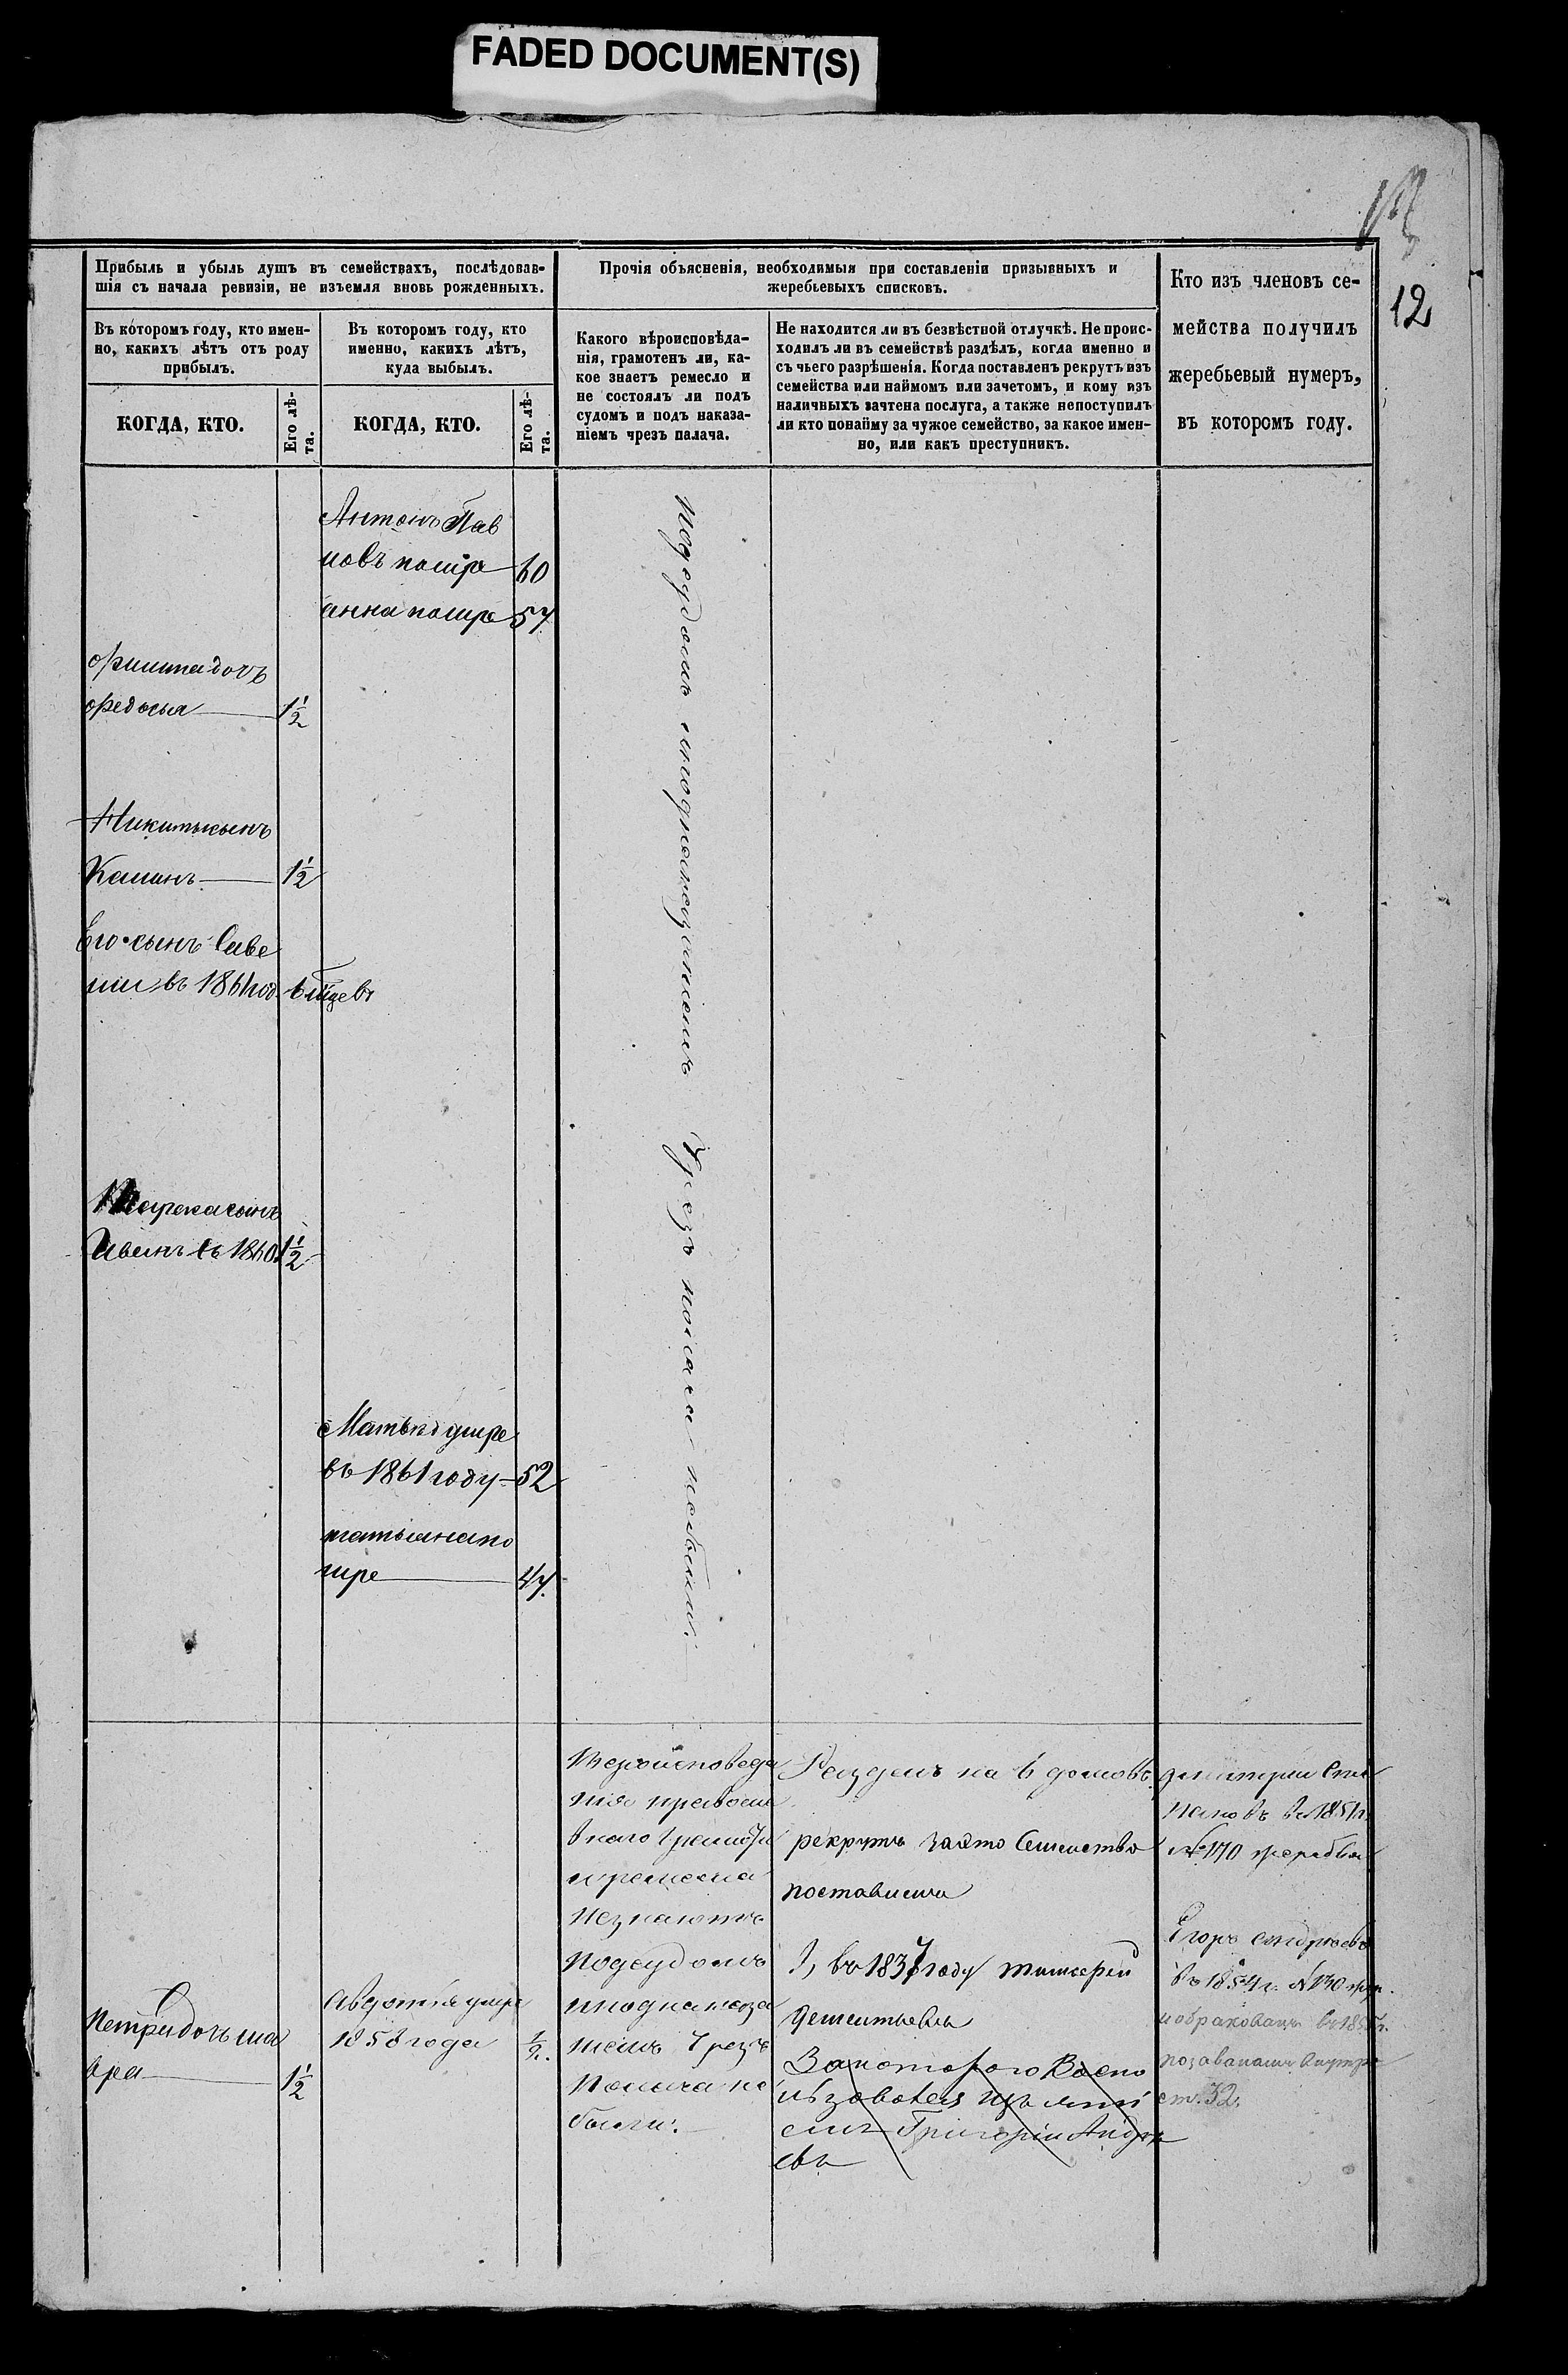 FADED DOCUMENT(S)
12
Прибыль и убыль душъ въ семействахъ, послѣдовав-
шія съ начала ревизіи, не изъемля вновь рожденныхъ.
Прочія объясненія, необходимыя при составленіи призывныхъ и
жеребьевыхъ списковъ.
Кто изъ членовъ се-
мейства получилъ
жеребьевый нумеръ,
въ которомъ году.
Въ которомъ году, кто имен-
но, какихъ лѣтъ отъ роду
прибылъ.
Въ которомъ году, кто
именно, какихъ лѣтъ,
куда выбылъ.
Какого вѣроисповѣда-
нія, грамотенъ ли, ка-
кое знаетъ ремесло и
не состоялъ ли подъ
судомъ и подъ наказа-
ніемъ чрезъ палача.
Не находится ли въ безвѣстной отлучкѣ. Не проис-
ходилъ ли въ семействѣ раздѣлъ, когда именно и
съ чьего разрѣшенія. Когда поставленъ рекрутъ изъ
семейства или наймомъ или зачетомъ, и кому изъ
наличныхъ зачтена послуга, а также непоступилъ
ли кто понайму за чужое семейство, за какое имен-
но, или какъ преступникъ.
КОГДА, КТО.
Его лѣ-
та.
КОГДА, КТО.
Его лѣ-
та.
Антонъ Пав
ловъ помре 60
анна помре 57
дочь
федосья 1½
Никиты сынъ
1½
Его сынъ Саве
лии въ 1861 год.
Марка сынъ
Иванъ въ 1860 1½
Мать умре
въ 1861 году 52
татьяна по
мре 47.
подсудомъ инод наказаниемъ чрезъ палача небыли.
Петра дочь ма
вра 1½
авдотья умре
1858 года ½.
Вероисповеда
ния правосла
внаго грамоты
иремесла
незнаютъ
подсудомъ
инод наказа
ниемъ чрезъ
Палача не
были.
Разделъ на 6 домовъ
рекрутъ заэто Семейство
поставлены
1, въ 1837 году тимофей
дементьевъ
За котораго Воспо
льзоватся изъ
Григорий Андре
евъ
дмитрий Сте
пановъ въ 1851 г.
№ 170 жеребья
Егоръ андреевъ
въ 1854 г. №
ст. 32.